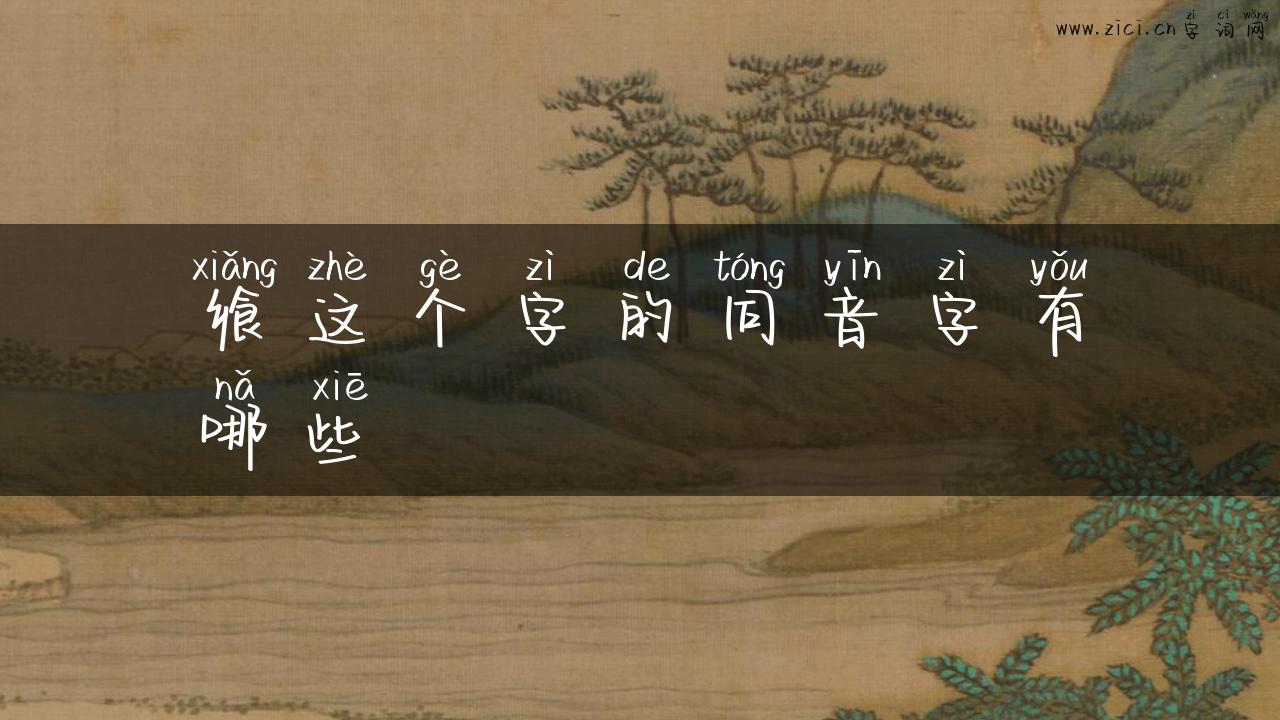 zì cí wǎng
www.zici.cn 字词网
xiǎng zhè gè zì de tóng yīn zì yǒu
飨这个字的同音字有
nǎ xiē
哪些